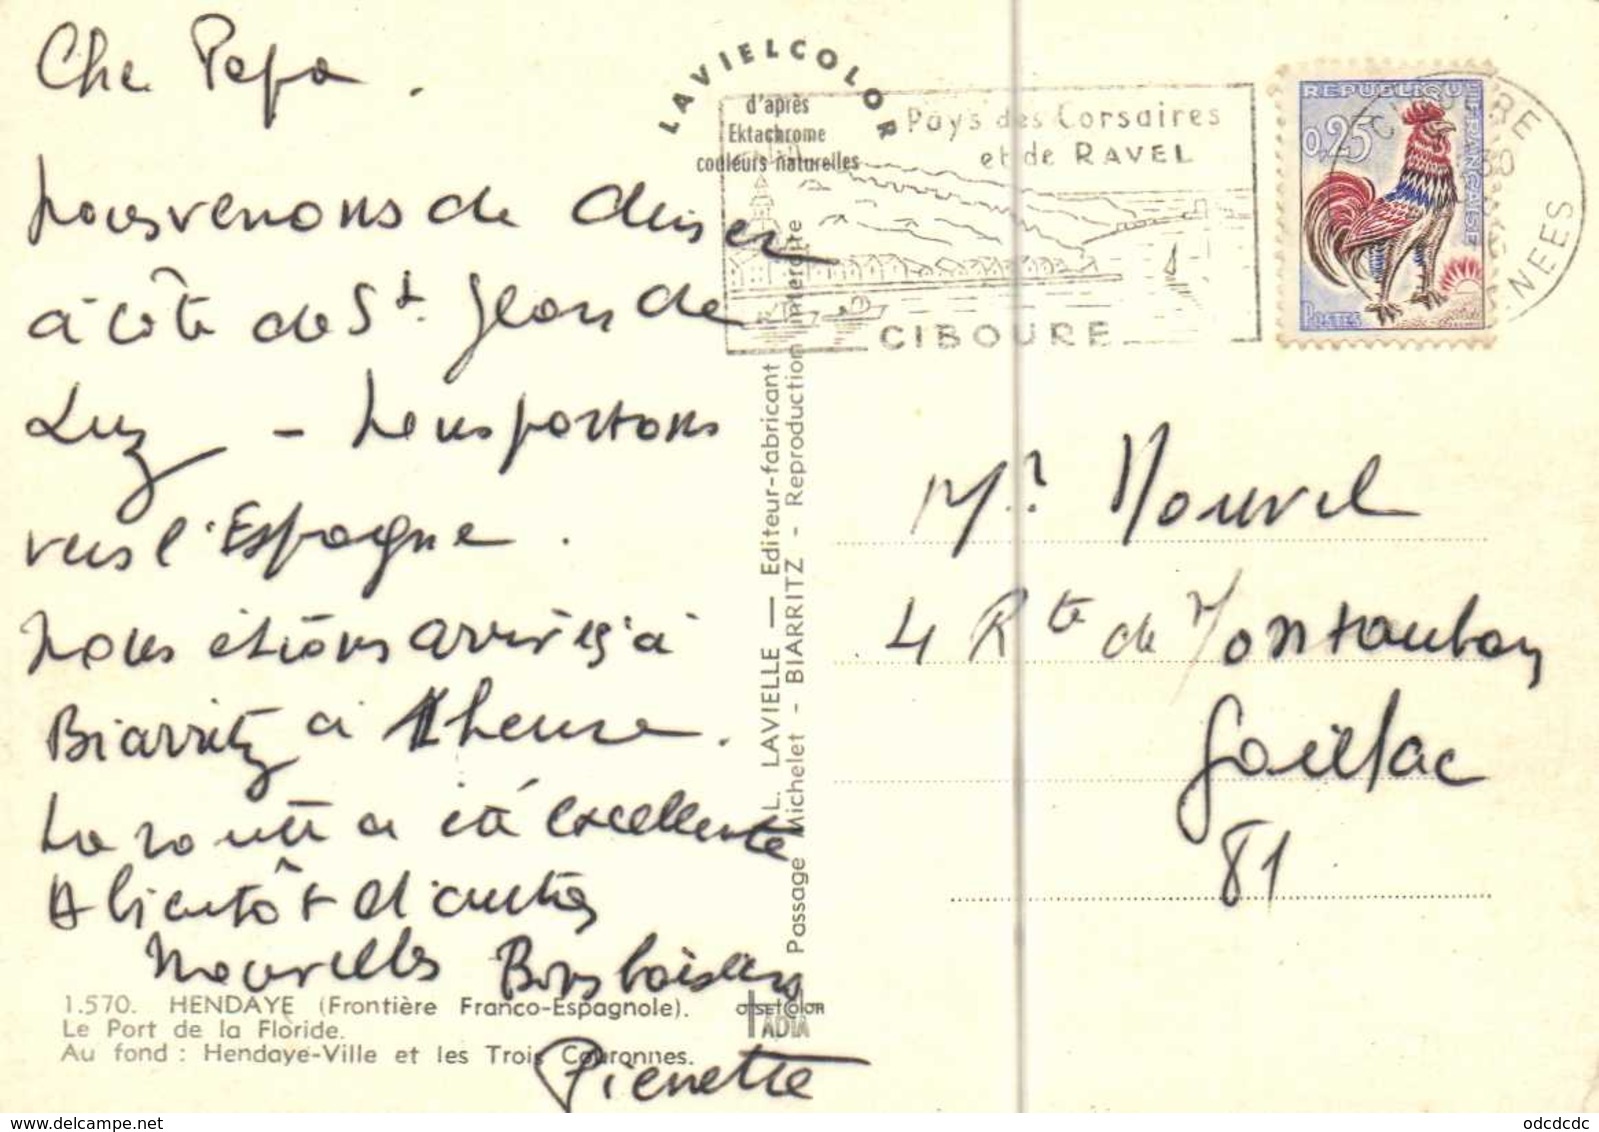 Cher Papa.
nous venons de diner
à côté de St. Jean de
Luz - nous partons
vers l'Espagne.
nous étions arrivés à
Biarritz à 1 heure.
La route a été excellente
A bientôt d'autres
nouvelles Bons baisers
Pierrette
1.570. HENDAYE (Frontière Franco-Espagnole).
Le Port de la Floride.
Au fond : Hendaye-Ville et les Trois Couronnes.
LAVIELCOLOR
d'après
Ektachrome
couleurs naturelles
ML. LAVIELLE — Editeur-fabricant
Passage Michelet - BIARRITZ - Reproduction interdite
OFFSETCOLOR
IADIA
Pays des Corsaires
et de RAVEL
CIBOURE
REPUBLIQUE FRANÇAISE
0,25
POSTES
CIBOURE
30
NEES
Mr. Nouvel
4 Rte de Montauban
Gaillac
81
www.delcampe.net
odcdcdc